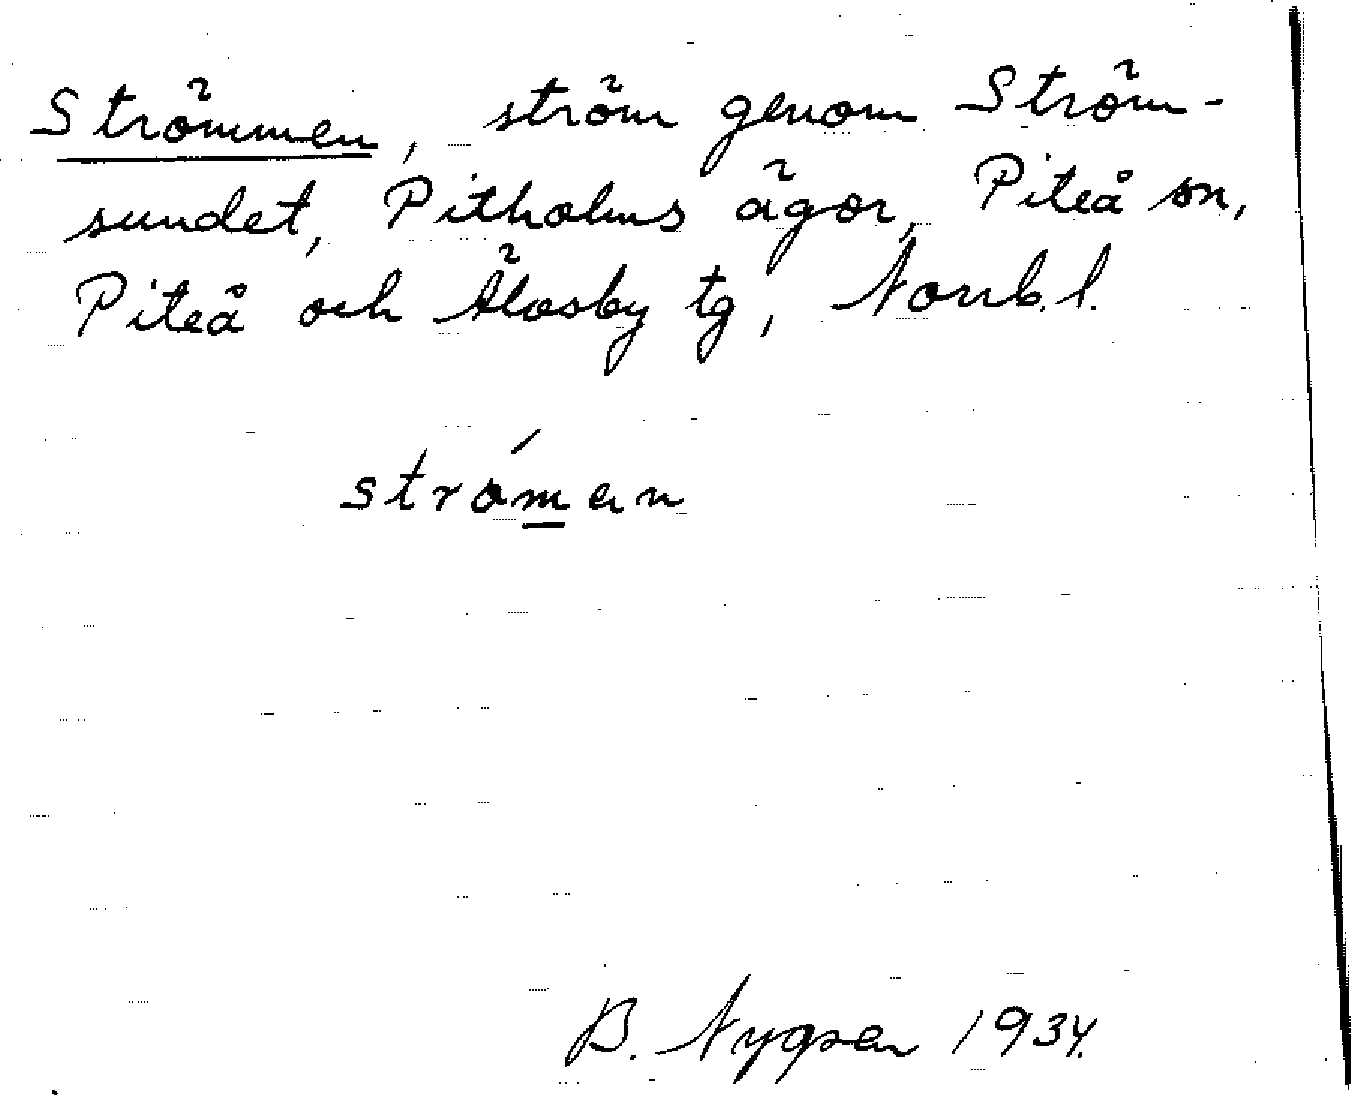 Strömmen, ström genom Ström-
sundet, Pitholms ägor, Piteå sn,
Piteå och Älvsby tg, Norrb. l.
strö́man
B. Nygren 1934.